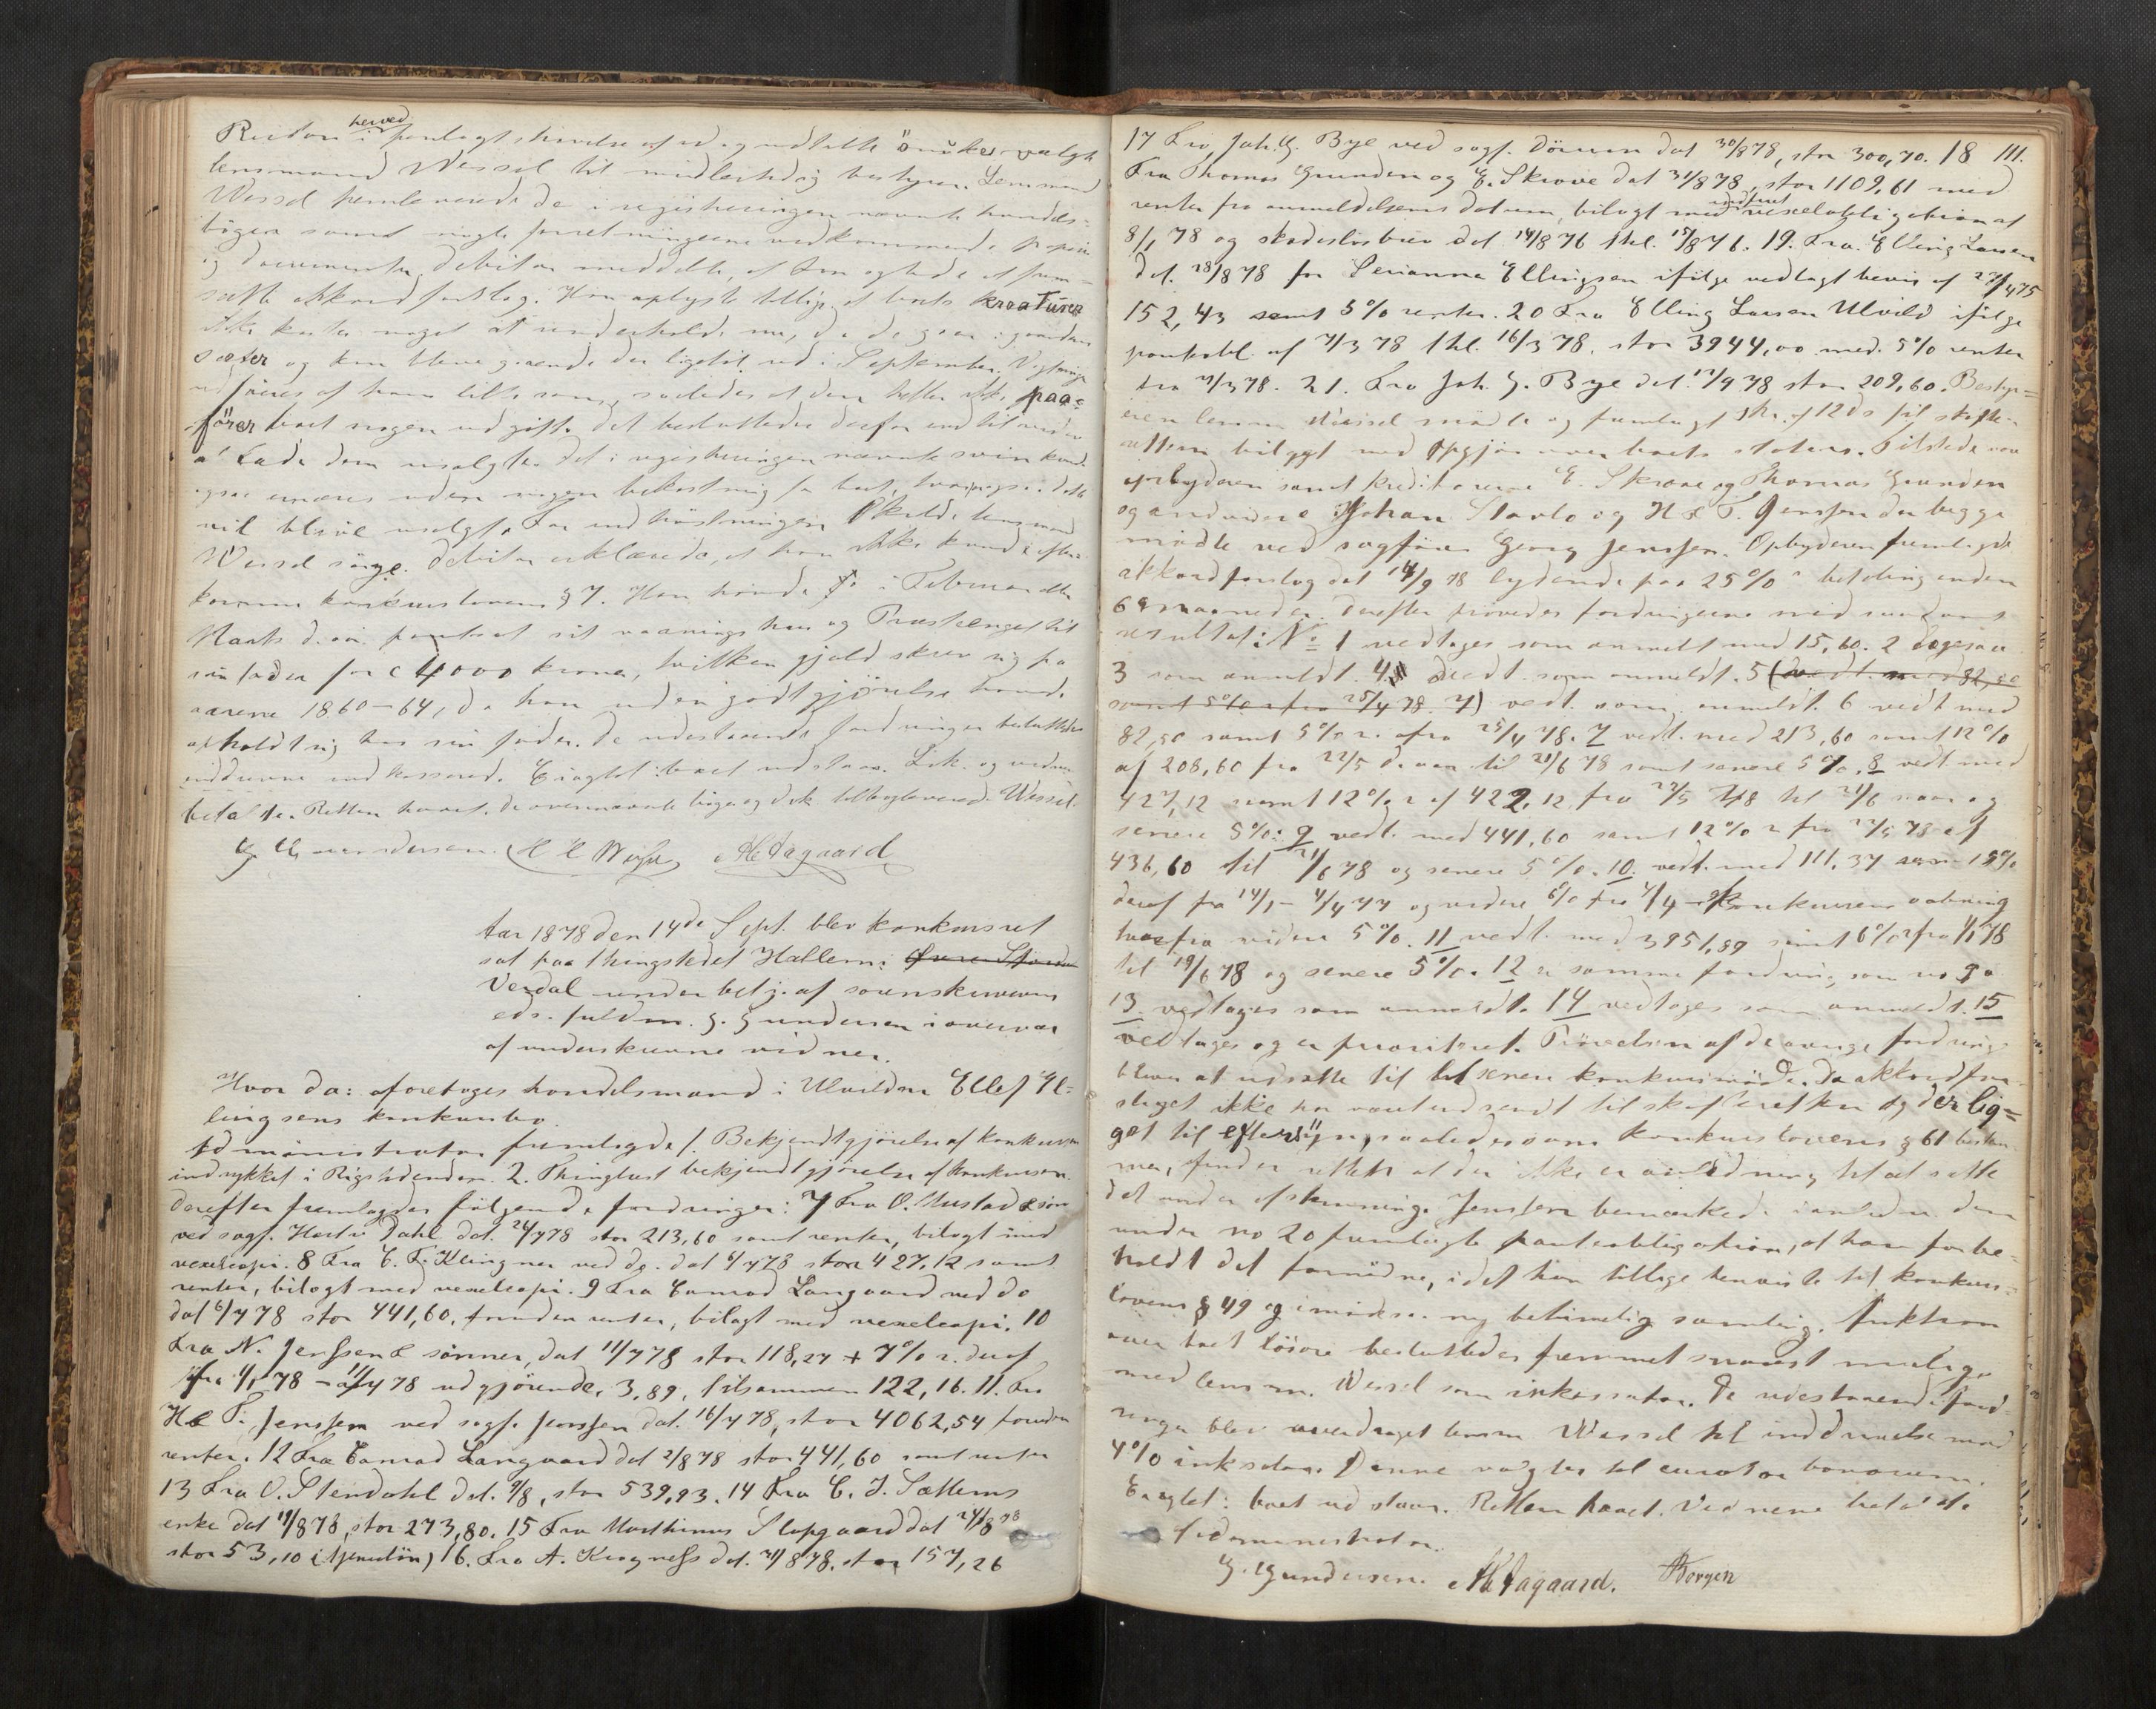 herved
lensmand Wessel til midlertidig bestyrer. Lensmand
Wessel
bøger samt nogle forretningerne vedkommende papirer
og documenter. Debitor meddelte, at han agtede at frem-
sætte akkordforslag. Han oplyste tillige at boets kreaturer
ikke koster noget at underholde nu, da de gaar i
sæter og kan blive gaaende der ligetil ud i September.
udføres af hans lille søn, saaledes at den heller ikke paa-
fører boet nogen udgift. Det besluttedes derfor indtil videre
at lade dem usolgte. Det i registreringen nævnte svin kunde
ogsaa ernæres uden nogen bekostning for boet, hvorfor ogsaa dette
vil blive usolgt. For indhøstningen skulde lensmand
Wessel sørge. Debitor erklærede, at han ikke kunde efter-
komme konkurslovens § 7. Han havde i Februar eller
Marts d. a. pantsat sit vaaningshus og Præstænget til
sin fader for c 4000 kroner, hvilken gjæld skrev sig fra
aarene 1860-64, da han uden godtgjørelse havde
opholdt sig hos sin fader. De udestaaende fordringer besluttedes
inddrevne ved kassered. Eragtet: boet udstaar. Lik. og vidner
betalte. Retten hævet. De ovennævnte bøger og dok. tilbagelevered. Wessel.
G. Gundersen. AHAagaard
Aar 1878 den 14de Sept. blev konkursret
sat paa thingstedet Hallem i Øvre Stjørdal
Verdal under betj. af sorenskriverens
eds. fuldm. G. Gundersen i overvær
af underskrevne vidner.
Hvor da: foretoges handelsmand i Ulvilden Ellef El-
lingsens konkursbo.
Administrator fremlagde 1. Bekjendtgjørelse af konkursen
indrykket i Rigstidenden. 2. Thinglæst bekjendtgjørelse af konkursen.
Derefter fremlagdes følgende fordringer: 7 Fra O. Mustad & søn
ved sagf. Dahl dat. 26/7 78 stor 213,60 samt renter, bilagt med
vexelcopi. 8 Fra C. F. Klingner ved do. dat 6/7 78 stor 427,12 samt
renter, bilagt med vexelcopi. 9 Fra Conrad Langaard ved do
dat 6/7 78 stor 441,60, foruden renter, bilagt med vexelcopi. 10
Fra N. Jenssen & sønner, dat 11/7 78 stor 118,27 + 7% r. deraf
fra 1/1 78 - 11/7 78 udgjørende 3,89, tilsammen 122,16. 11. Fra
H & F. Jenssen ved sagf. Jenssen dat. 16/7 78, stor 4062,54 foruden
renter. 12 Fra Conrad Langaard dat 2/8 78 stor 441,60 samt renter
13 Fra O. Stendahl dat. 9/8, stor 539,93. 14 Fra C. J. Sættems
enke dat 19/8 78, stor 273,80. 15 Fra Marthinus Slapgaard dat 24/8 78
stor 53,10 (tjenerløn) 16. Fra A. Krogness dat. 31/8 78. stor 157,26
17 Fra Joh. G. Bye ved sagf. dat 30/8 78, stor 300,70. 18 111.
Fra Thomas Grunden og E. Skrove dat 31/8 78, stor 1109,61 med
renter fra anmeldelsens datum, bilagt med vexelobligation af
8/1 78 og skadesløsbrev dat. 14/8 76 thl. 15/8 76. 19. Fra Elling Larsen
dat. 28/8 78 for Serianna Ellingsen ifølge vedlagt bevis af 27/4 75
152,43 samt 5% renter. 20 Fra Elling Larsen Ulvild ifølge
panteobl. af 7/3 78 thl. 16/3 78, stor 3944,00 med 5% renter
fra 7/3 78. 21. Fra Joh. G. Bye dat. 12/9 78 stor 209,60. Besty-
reren lensm. Wessel mødte og fremlagt skr. af 12 ds til skifte-
retten bilagt med opgjør over boets status. Tilstede var
opbyderen samt kreditorerne E. Skrove og Thomas Grunden
og endvidere Johan Slavlo og H & F. Jenssen der begge
mødte ved sagfører Georg Jenssen. Opbyderen fremlagde
akkordforslag dat 14/9 78 lydende paa 25% betaling inden
6 maaneder. Derefter prøvedes fordringerne med saadant
resultat: No 1 vedtages som anmeldt med 15,60. 2 ligesaa
3 som anmeldt. 4 vedt. som anmeldt. 5 (vedt. med 82,50
samt 5% r fra 25/4 78. 7) vedt. som anmeldt. 6 vedt med
82,50 samt 5% r. fra 25/4 78. 7 vedt. med 213,60 samt 12%
af 208,60 fra 22/5 d. aar til 21/6 78 samt senere 5%. 8 vedt med
427,12 samt 12% r af 422,12 fra 22/5 78 til 21/6 og
senere 5%. 9 vedt. med 441,60 samt 12% r fra 22/5 78 af
436,60 til 21/6 78 og senere 5%. 10. vedt. med 111,37
deraf fra 14/1 - 4/4 77 og videre 6% fra 4/4 - konkursens aabning
hvorfra videre 5%. 11 vedt. med 3951,89 samt 6% r fra 1/1 78
til 19/6 78 og senere 5%. 12 er samme fordring som no 9.
13. vedtages som anmeldt. 14 vedtages som anmeldt. 15
vedtages og er prioriteret. Prøvelsen af de øvrige fordringer
bliver at udsætte til senere konkursmøde. Da akkordfor-
slaget ikke har været indsendt til skifteretten og der lig-
get til eftersyn, saaledes som konkurslovens § 61 bestem-
mer, finder retten at der ikke er anledning til at sætte
det under afstemning. Jenssen bemærkede i anledn. den
under no 20 fremlagte panteobligation, at han forbe-
holdt det fornødne, idet han tillige henviste til konkurs-
lovens § 49 og imødesaa ny betimelig samling. Auktion
over boets løsøre besluttedes fremmet snarest mulig,
med lensm. Wessel som inkassator. De udestaaende ford-
ringer blev overdraget lensm Wessel til inddrivelse mod
4% inksalær. Denne valgtes til curator bonorum.
Eragtet: boet udstaar. Retten hævet. Vidnerne betalt af
Administrator.
G. Gundersen. AHAagaard. Borgen